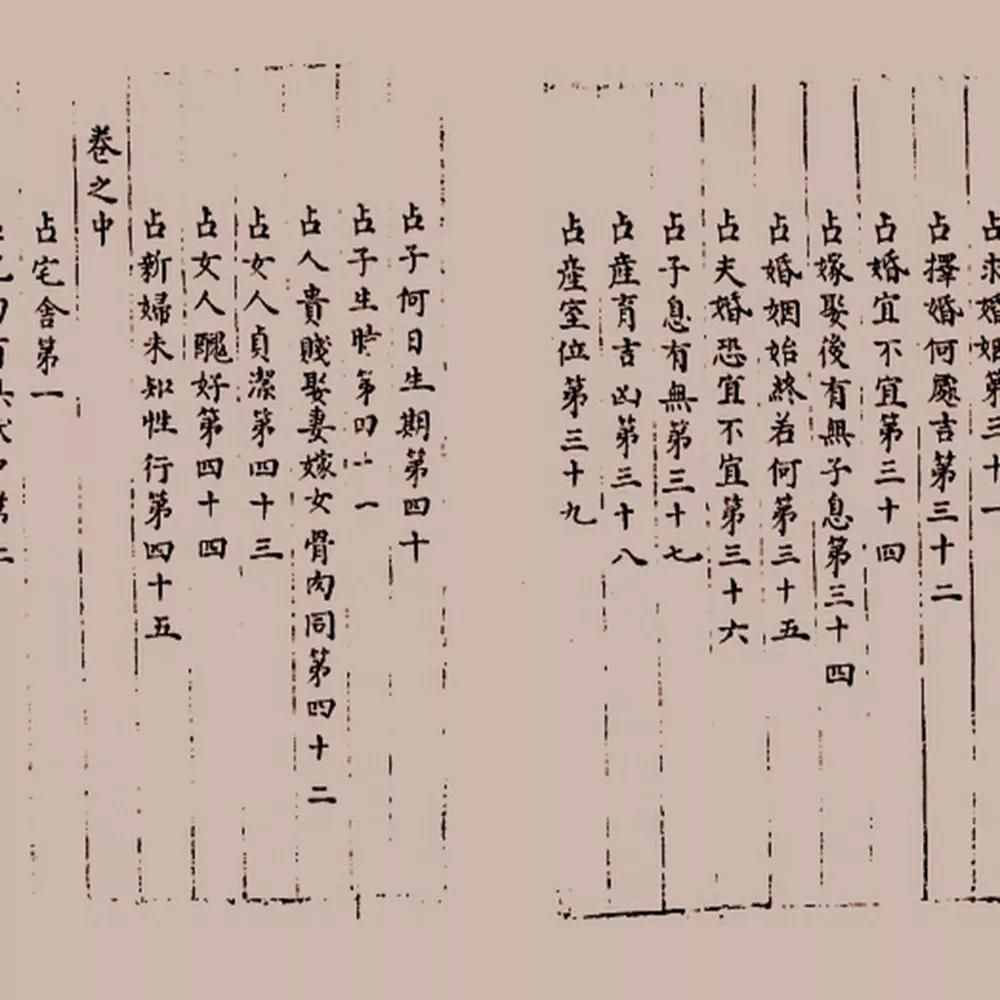 占求婚姻第三十一
占擇婚何處吉第三十二
占婚宜不宜第三十四
占嫁娶後有無子息第三十四
占婚姻始終若何第三十五
占夫婚恐宜不宜第三十六
占子息有無第三十七
占產育吉凶第三十八
占產室位第三十九
占子何日生期第四十
占子生時第四十一
占人貴賤娶妻嫁女骨肉同第四十二
占女人貞潔第四十三
占女人醜好第四十四
占新婦未知性行第四十五
卷之中
占宅舍第一